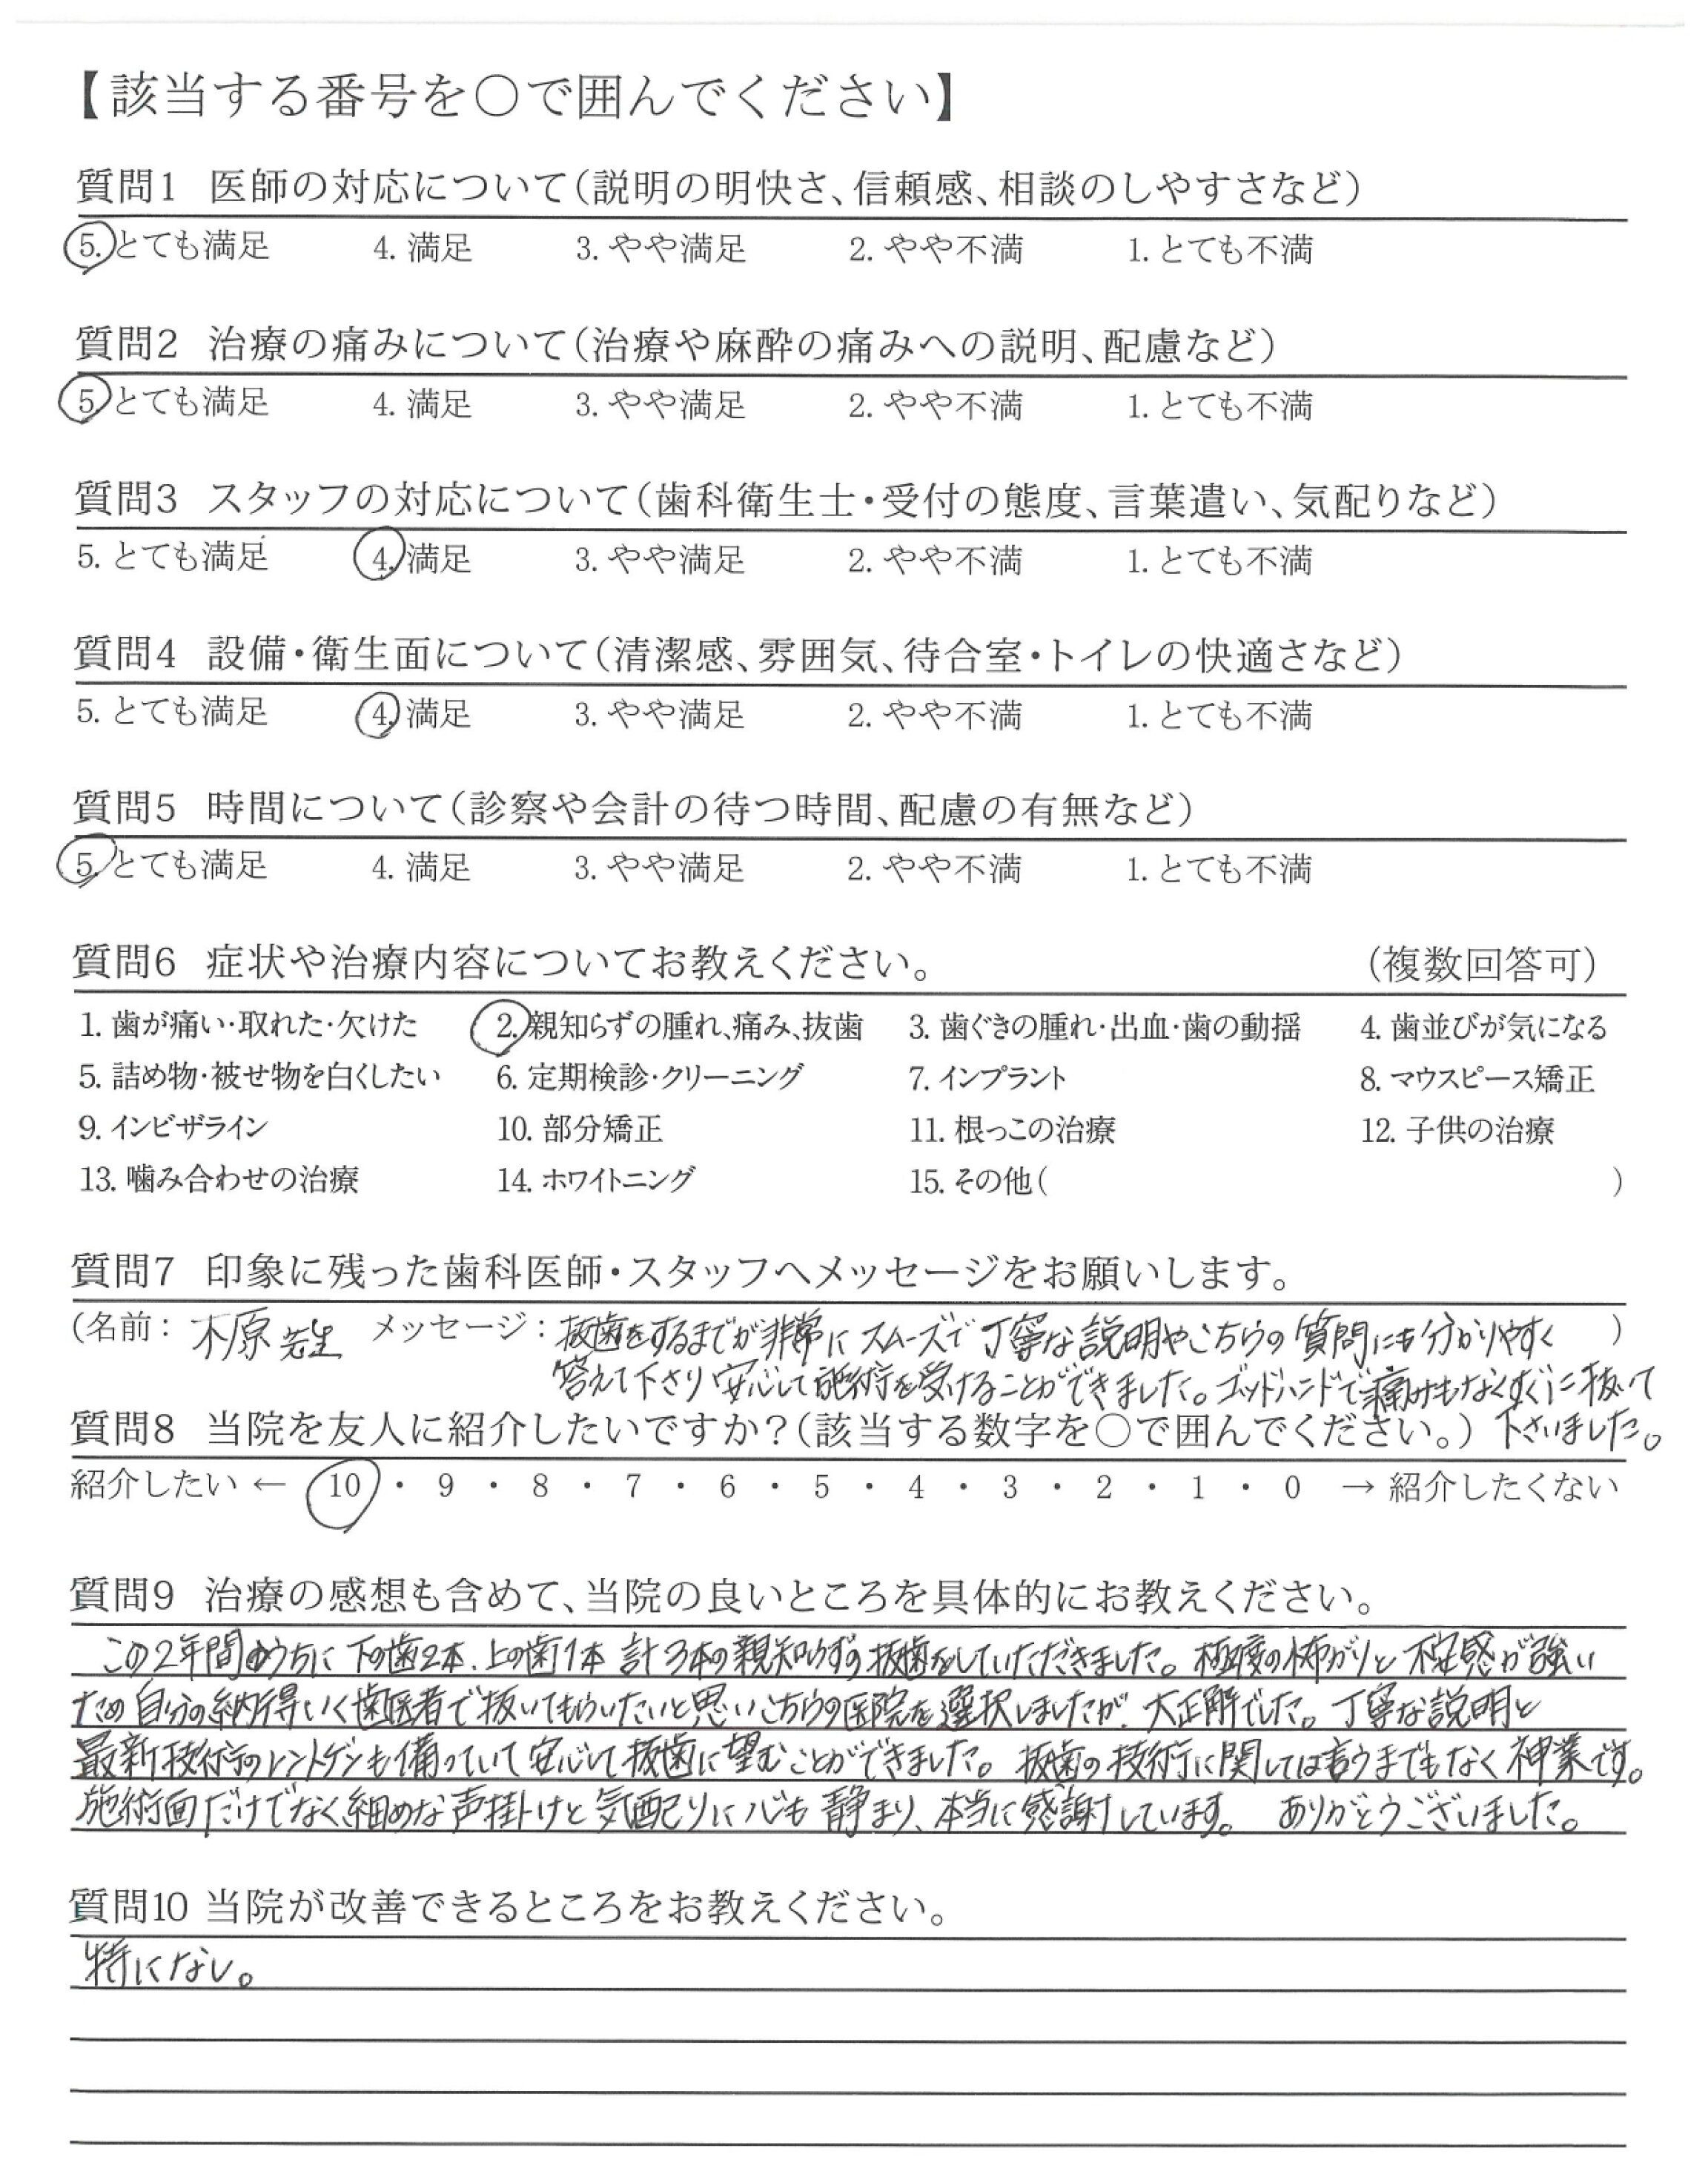 【該当する番号を○で囲んでください】
質問1 医師の対応について(説明の明快さ、信頼感、相談のしやすさなど)
5. とても満足 4. 満足 3. やや満足 2. やや不満 1. とても不満
質問2 治療の痛みについて(治療や麻酔の痛みへの説明、配慮など)
5. とても満足 4. 満足 3. やや満足 2. やや不満 1. とても不満
質問3 スタッフの対応について(歯科衛生士・受付の態度、言葉遣い、気配りなど)
5. とても満足 4. 満足 3. やや満足 2. やや不満 1. とても不満
質問4 設備・衛生面について(清潔感、雰囲気、待合室・トイレの快適さなど)
5. とても満足 4. 満足 3. やや満足 2. やや不満 1. とても不満
質問5 時間について(診察や会計の待つ時間、配慮の有無など)
5. とても満足 4. 満足 3. やや満足 2. やや不満 1. とても不満
質問6 症状や治療内容についてお教えください。 (複数回答可)
1. 歯が痛い・取れた・欠けた 2. 親知らずの腫れ、痛み、抜歯 3. 歯ぐきの腫れ・出血・歯の動揺 4. 歯並びが気になる
5. 詰め物・被せ物を白くしたい 6. 定期検診・クリーニング 7. インプラント 8. マウスピース矯正
9. インビザライン 10. 部分矯正 11. 根っこの治療 12. 子供の治療
13. 噛み合わせの治療 14. ホワイトニング 15. その他( )
質問7 印象に残った歯科医師・スタッフへメッセージをお願いします。
(名前: 木原先生 メッセージ: 抜歯をするまでが非常にスムーズで丁寧な説明やこちらの質問にも分かりやすく )
答えて下さり安心して施術を受けることができました。ゴッドハンドで痛みもなくすぐに抜いて
下さいました。
質問8 当院を友人に紹介したいですか?(該当する数字を○で囲んでください。)
紹介したい ← 10 ・ 9 ・ 8 ・ 7 ・ 6 ・ 5 ・ 4 ・ 3 ・ 2 ・ 1 ・ 0 → 紹介したくない
質問9 治療の感想も含めて、当院の良いところを具体的にお教えください。
この2年間のうちに下の歯2本、上の歯1本 計3本の親知らずの抜歯をしていただきました。極度の怖がりと不安感が強い
ため自分の納得いく歯医者で抜いてもらいたいと思いこちらの医院を選択しましたが、大正解でした。丁寧な説明と
最新技術のレントゲンも備っていて安心して抜歯に望むことができました。抜歯の技術に関しては言うまでもなく神業です。
施術面だけでなく細めな声掛けと気配りに心も静まり、本当に感謝しています。 ありがとうございました。
質問10 当院が改善できるところをお教えください。
特になし。